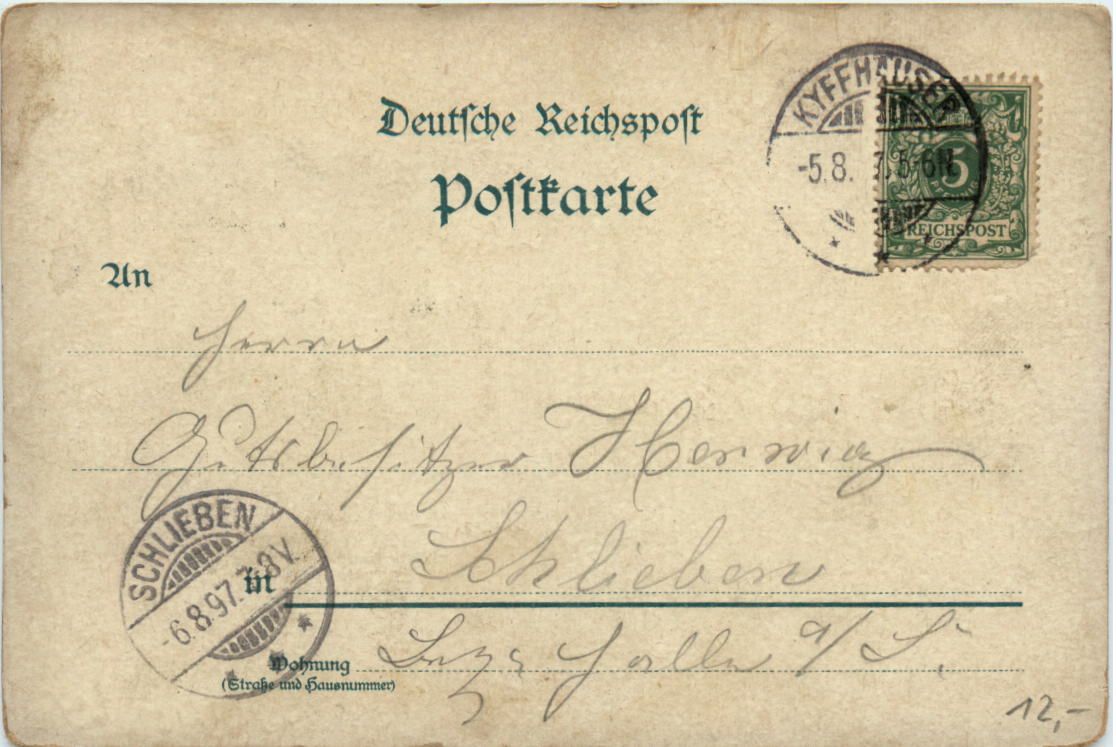 Deutsche Reichspost
Postkarte
KYFFHÄUSER
-5.8. 5-6N
5
REICHSPOST
An
Herrn
Gutsbesitzer Herwig
SCHLIEBEN
-6.8.97.7-8V.
in Schlieben
Wohnung Bez. Halle a/S.
(Straße und Hausnummer)
12,-